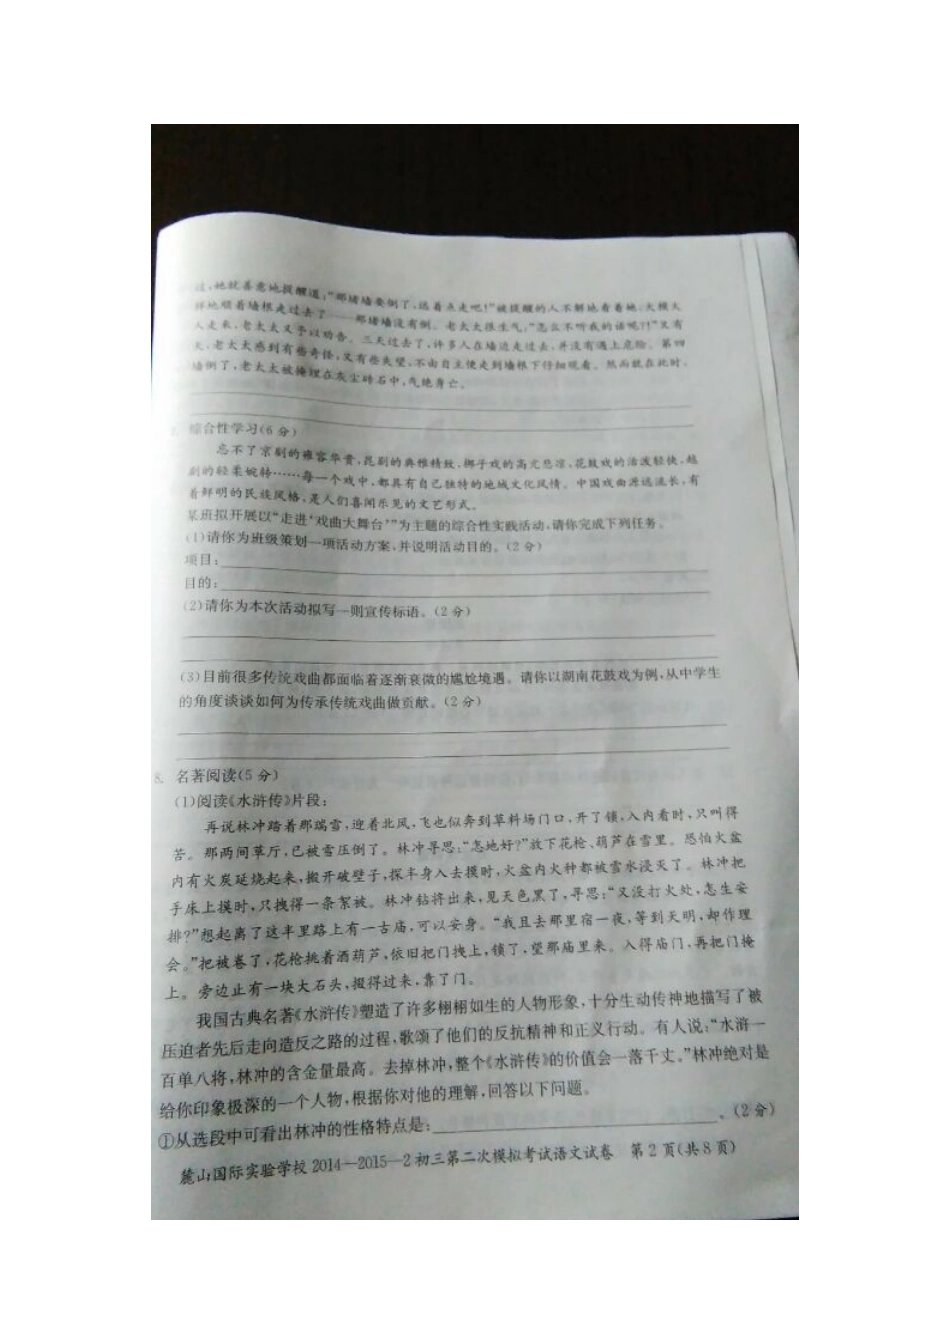 过,她就善意地提醒道:“那堵墙要倒了,远着点走吧!”被提醒的人不解地看着她,大模大
样地顺着墙根走过去了——那堵墙没有倒。老太太很生气:“怎么不听我的话呢?!”又有
人走来,老太太又予以劝告。三天过去了,许多人在墙边走过去,并没有遇上危险。第四
天,老太太感到有些奇怪,又有些失望,不由自主便走到墙根下仔细观看。然而就在此时,
墙倒了,老太太被掩埋在灰尘砖石中,气绝身亡。
综合性学习(6分)
忘不了京剧的雍容华贵,昆剧的典雅精致,梆子戏的高亢悲凉,花鼓戏的活泼轻快,越
剧的轻柔婉转……每一个戏中,都具有自己独特的地域文化风情。中国戏曲源远流长,有
着鲜明的民族风格,是人们喜闻乐见的文艺形式。
某班拟开展以“走进‘戏曲大舞台’”为主题的综合性实践活动,请你完成下列任务。
(1)请你为班级策划一项活动方案,并说明活动目的。(2分)
项目:
目的:
(2)请你为本次活动拟写一则宣传标语。(2分)
(3)目前很多传统戏曲都面临着逐渐衰微的尴尬境遇。请你以湖南花鼓戏为例,从中学生
的角度谈谈如何为传承传统戏曲做贡献。(2分)
8. 名著阅读(5分)
(1)阅读《水浒传》片段:
再说林冲踏着那瑞雪,迎着北风,飞也似奔到草料场门口,开了锁,入内看时,只叫得
苦。那两间草厅,已被雪压倒了。林冲寻思:“怎地好?”放下花枪、葫芦在雪里。恐怕火盆
内有火炭延烧起来,搬开破壁子,探半身入去摸时,火盆内火种都被雪水浸灭了。林冲把
手床上摸时,只拽得一条絮被。林冲钻将出来,见天色黑了,寻思:“又没打火处,怎生安
排?”想起离了这半里路上有一古庙,可以安身。“我且去那里宿一夜,等到天明,却作理
会。”把被卷了,花枪挑着酒葫芦,依旧把门拽上,锁了,望那庙里来。入得庙门,再把门掩
上。旁边止有一块大石头,掇得过来,靠了门。
我国古典名著《水浒传》塑造了许多栩栩如生的人物形象,十分生动传神地描写了被
压迫者先后走向造反之路的过程,歌颂了他们的反抗精神和正义行动。有人说:“水浒一
百单八将,林冲的含金量最高。去掉林冲,整个《水浒传》的价值会一落千丈。”林冲绝对是
给你印象极深的一个人物,根据你对他的理解,回答以下问题。
①从选段中可看出林冲的性格特点是: 。(2分)
麓山国际实验学校2014—2015—2初三第二次模拟考试语文试卷 第2页(共8页)